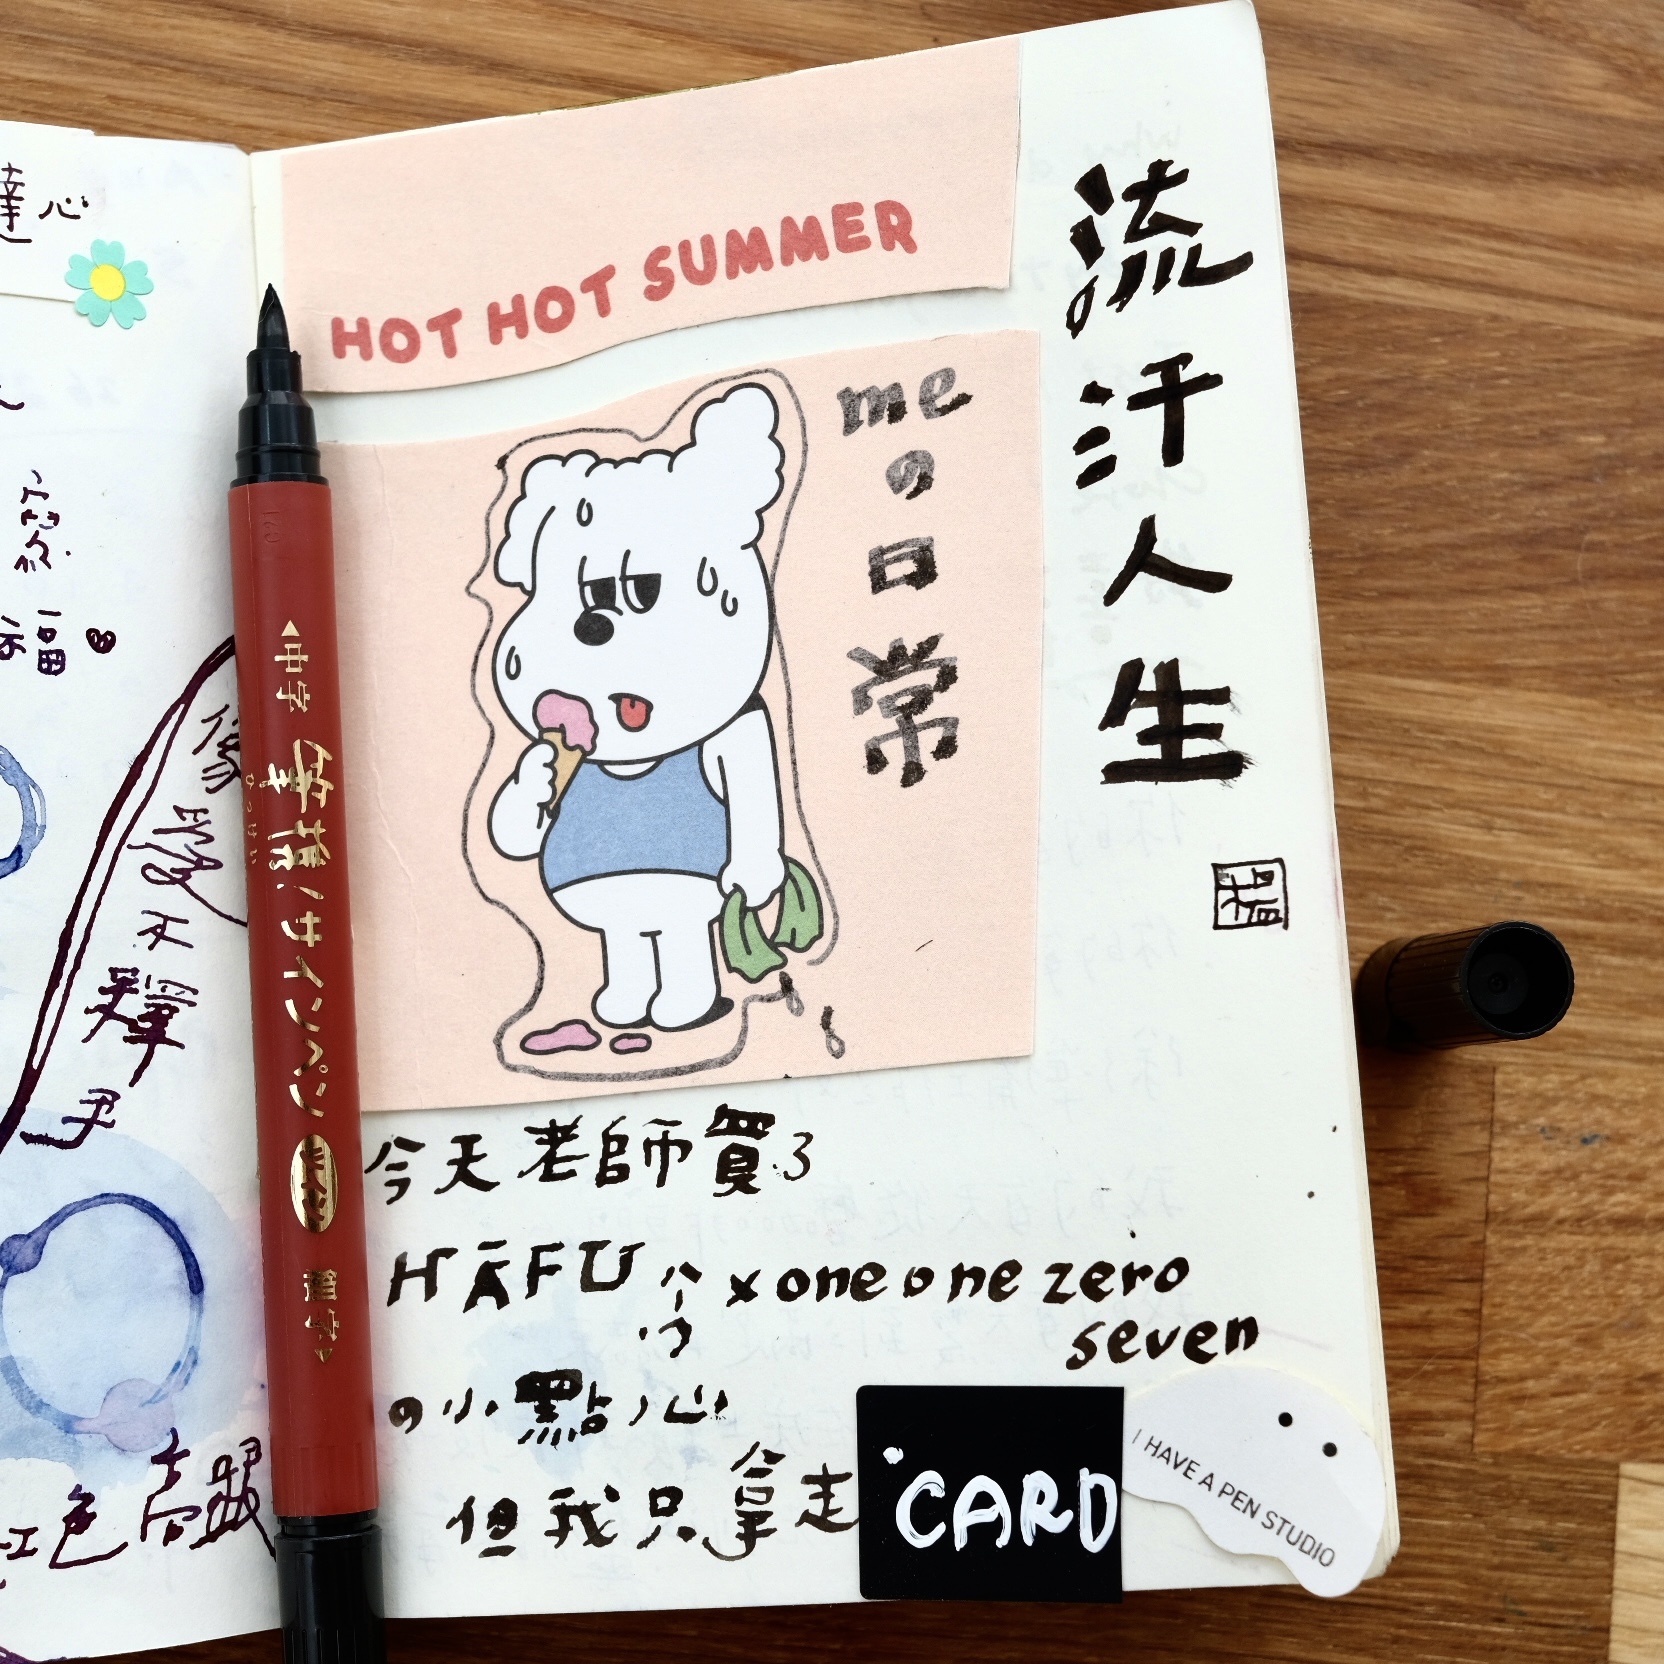 達心
福
不
釋
手
紅色高 
中字 筆ごこち
サインペン
細字
HOT HOT SUMMER
me
の
日
常
流
汗
人
生
今天老師買了
HĀFU
x one one zero
seven
の小點心
但我只拿走
CARD
I HAVE A PEN STUDIO